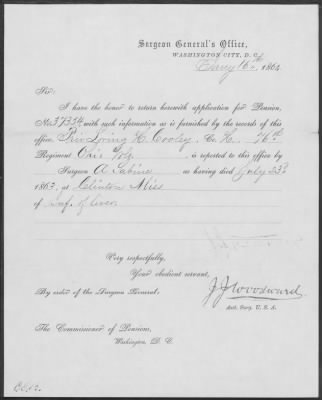 Surgeon General's Office,
WASHINGTON CITY, D. C.
16th, 1864
Sir:
I have the honor to return herewith application for Pension,
No. 37334, with such information as is furnished by the records of this
office. Priv Loring H. Cooley, Co. H., 76th
Regiment Ohio Vols. is reported to this office by
Surgeon A. Sabine as having died July 23d
1863, at Clinton Miss
of Inf. of
Very respectfully,
Your obedient servant,
By order of the Surgeon General:
J J Woodward
Asst. Surg. U. S. A.
The Commissioner of Pensions,
Washington, D. C.